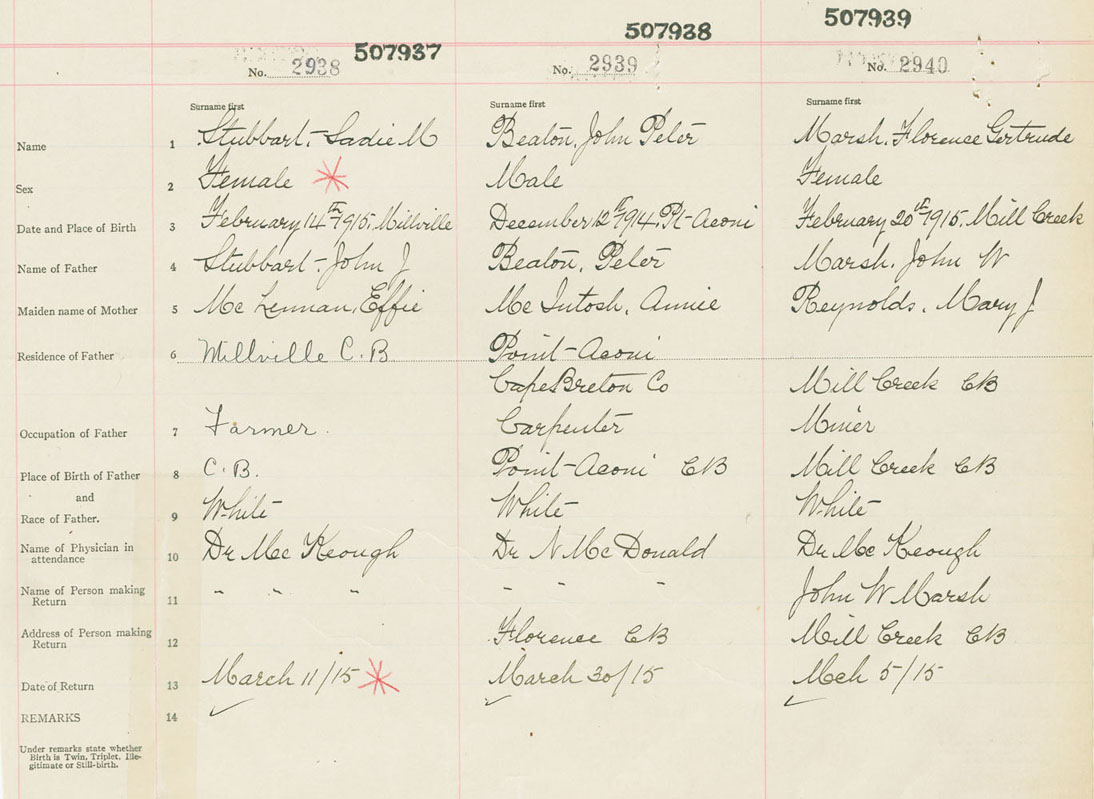 507937 507938 507939
No. 2938 No. 2939 No. 2940
Surname first Surname first Surname first
Name 1 Stubbart, Sadie M Beaton, John Peter Marsh, Florence Gertrude
Sex 2 Female Male Female
Date and Place of Birth 3 February 14th 1915, Millville December 12th 1914, Pt-Aconi February 20th 1915, Mill Creek
Name of Father 4 Stubbart, John J Beaton, Peter Marsh, John W
Maiden name of Mother 5 Mc Lennan, Effie Mc Intosh, Annie Reynolds, Mary J
Residence of Father 6 Millville C.B. Point-Aconi
Cape Breton Co Mill Creek CB
Occupation of Father 7 Farmer. Carpenter Miner
Place of Birth of Father 8 C.B. Point-Aconi CB Mill Creek CB
and
Race of Father. 9 White White White
Name of Physician in
attendance 10 Dr Mc Keough Dr N Mc Donald Dr Mc Keough
Name of Person making
Return 11 " " " " " " John W Marsh
Address of Person making
Return 12 Florence CB Mill Creek CB
Date of Return 13 March 11/15 March 30/15 Mch 5/15
REMARKS 14
Under remarks state whether
Birth is Twin, Triplet, Ille-
gitimate or Still-birth.